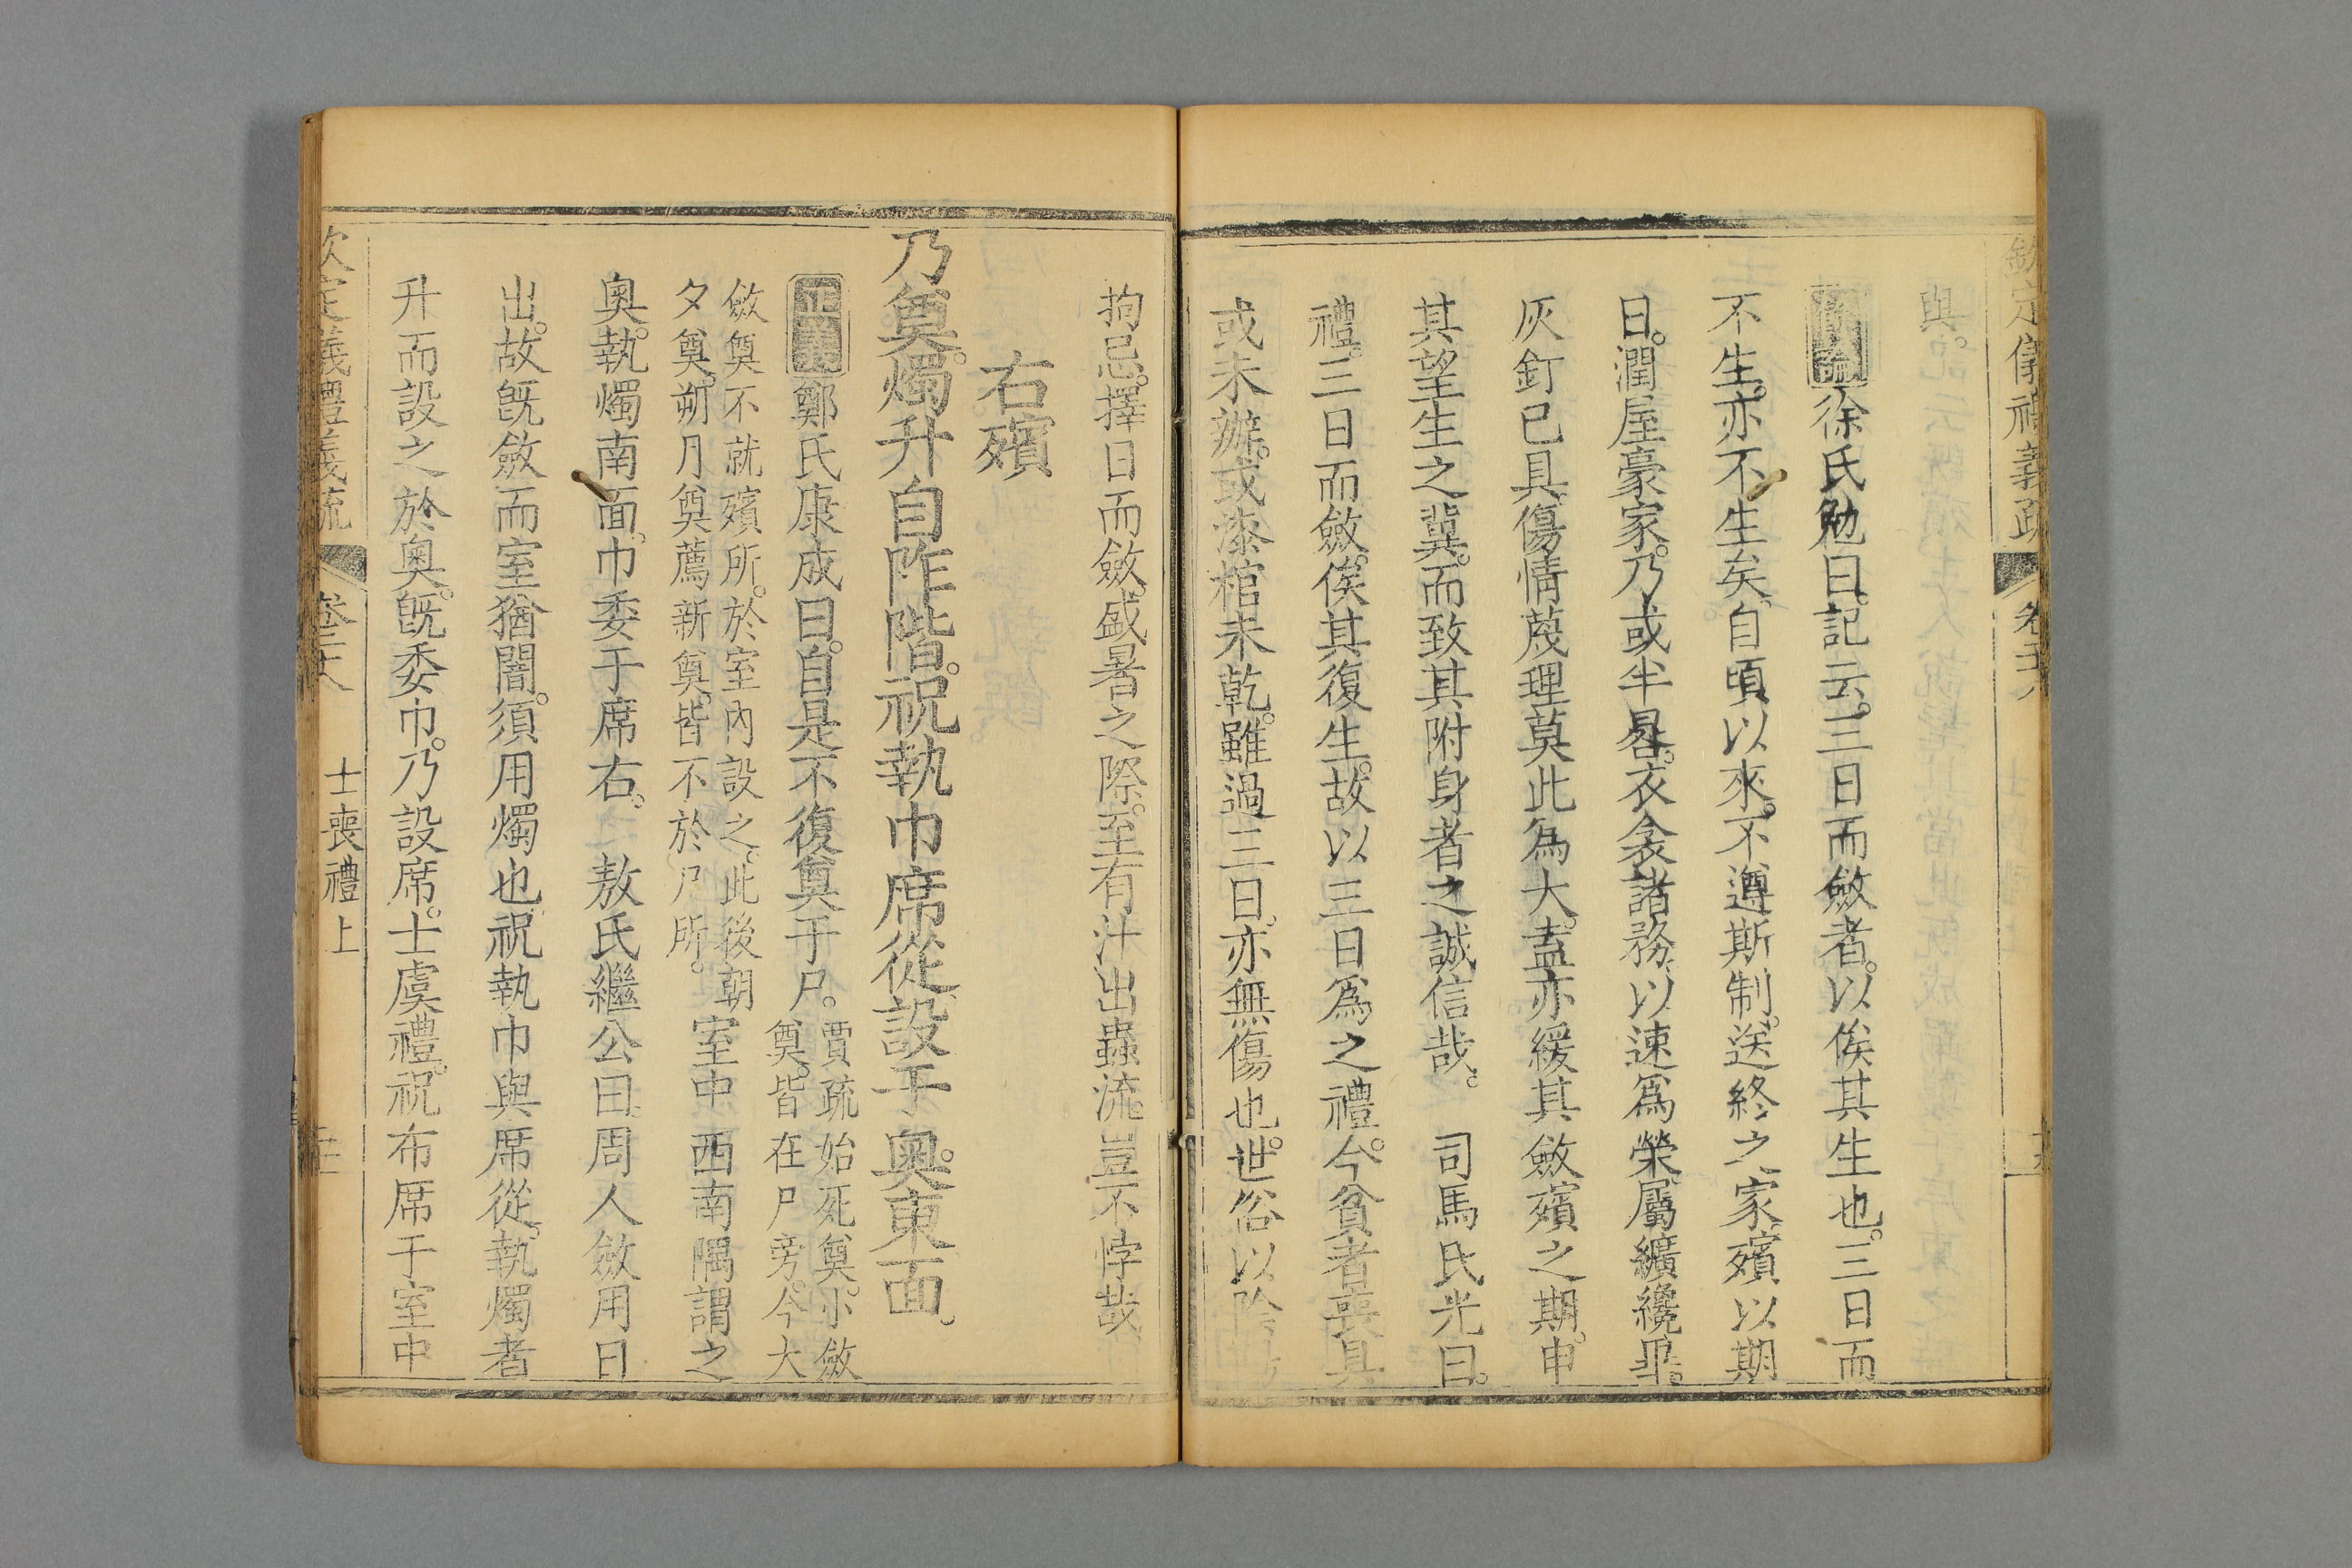 欽定儀禮義疏 卷二十八
與。
餘論徐氏勉曰。記云。三日而斂者。以俟其生也。三日而
不生。亦不生矣。自頃以來。不遵斯制。送終之家。殯以期
日。潤屋豪家。乃或半晷。衣衾諸務。以速爲榮。屬纊纔畢。
灰釘已具。傷情蔑理。莫此為大。盍亦緩其斂殯之期。申
其望生之冀。而致其附身者之誠信哉。 司馬氏光曰。
禮。三日而斂。俟其復生。故以三日爲之禮。今貧者喪具
或未辦。或漆棺未乾。雖過三日。亦無傷也。世俗以陰陽
拘忌。擇日而斂。盛暑之際。至有汁出蟲流。豈不悖哉
右殯
乃奠。燭升自阼階。祝執巾席從。設于奧。東面。
正義鄭氏康成曰。自是不復奠于尸。賈疏始死奠。小斂奠。皆在尸旁。今大
斂奠不就殯所。於室內設之。此後朝夕奠。朔月奠薦新奠。皆不於尸所。室中西南隅謂之
奧。執燭南面。巾委于席右。 敖氏繼公曰。周人斂用日
出。故旣斂而室猶闇。須用燭也。祝執巾與席從。執燭者
升而設之於奧。旣委巾。乃設席。士虞禮。祝布席于室中
欽定儀禮義疏 卷二十八 士喪禮上